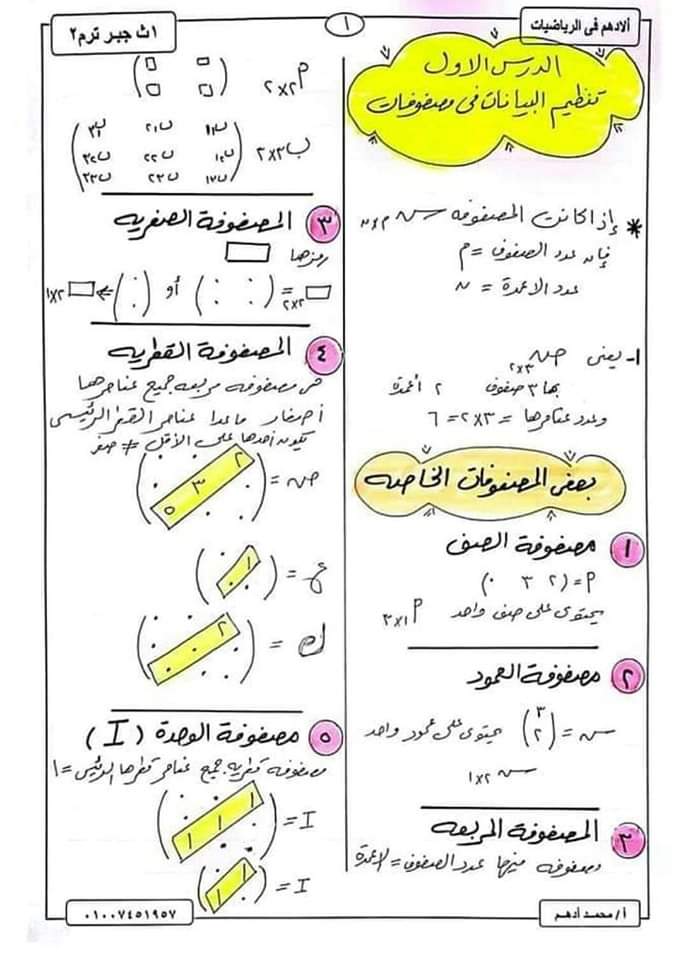 ألادهم فى الرياضيات
١
١ث جبر ترم٢
الدرس الاول
تنظيم البيانات فى مصفوفات
* إذا كانت المصفوفه س م×ن
فإن عدد الصفوف = م
عدد الاعمدة = ن
١- يعنى ص ٣×٢
بها ٣ صفوف ٢ أعمدة
وعدد عناصرها = ٣×٢ = ٦
بعض المصفوفات الخاصه
١ مصفوفة الصف
P = (٢ ٣ ٠)
يحتوى على صف واحد P ١×٣
٢ مصفوفة العمود
س = (٣ ٢) يحتوى على عمود واحد
س ٢×١
٣ المصفوفة المربعه
مصفوفه فيها عدد الصفوف = الاعمدة
P ٢×٢ (□ □
□ □)
ب ٣×٣
٣ المصفوفة الصفريه
رمزها □
□ ٢×٢ = (٠ ٠ ٠ ٠) أو (٠ ٠) ⇐ □ ٢×١
٤ المصفوفة القطريه
هى مصفوفه مربعه جميع عناصرها
أصفار ماعدا عناصر القطر الرئيسى
يكون أحدها على الأقل ≠ صفر
ص = (٢ ٠ ٠
٠ ٣ ٠
٠ ٠ ٥)
ع =
ك =
٥ مصفوفة الوحدة (I)
مصفوفه قطريه جميع عناصر قطرها الرئيسى = ١
I = (١ ٠ ٠
٠ ١ ٠
٠ ٠ ١)
I = (١ ٠
٠ ١)
أ/ محمد أدهم
٠١٠٠٧٤٥١٩٥٧